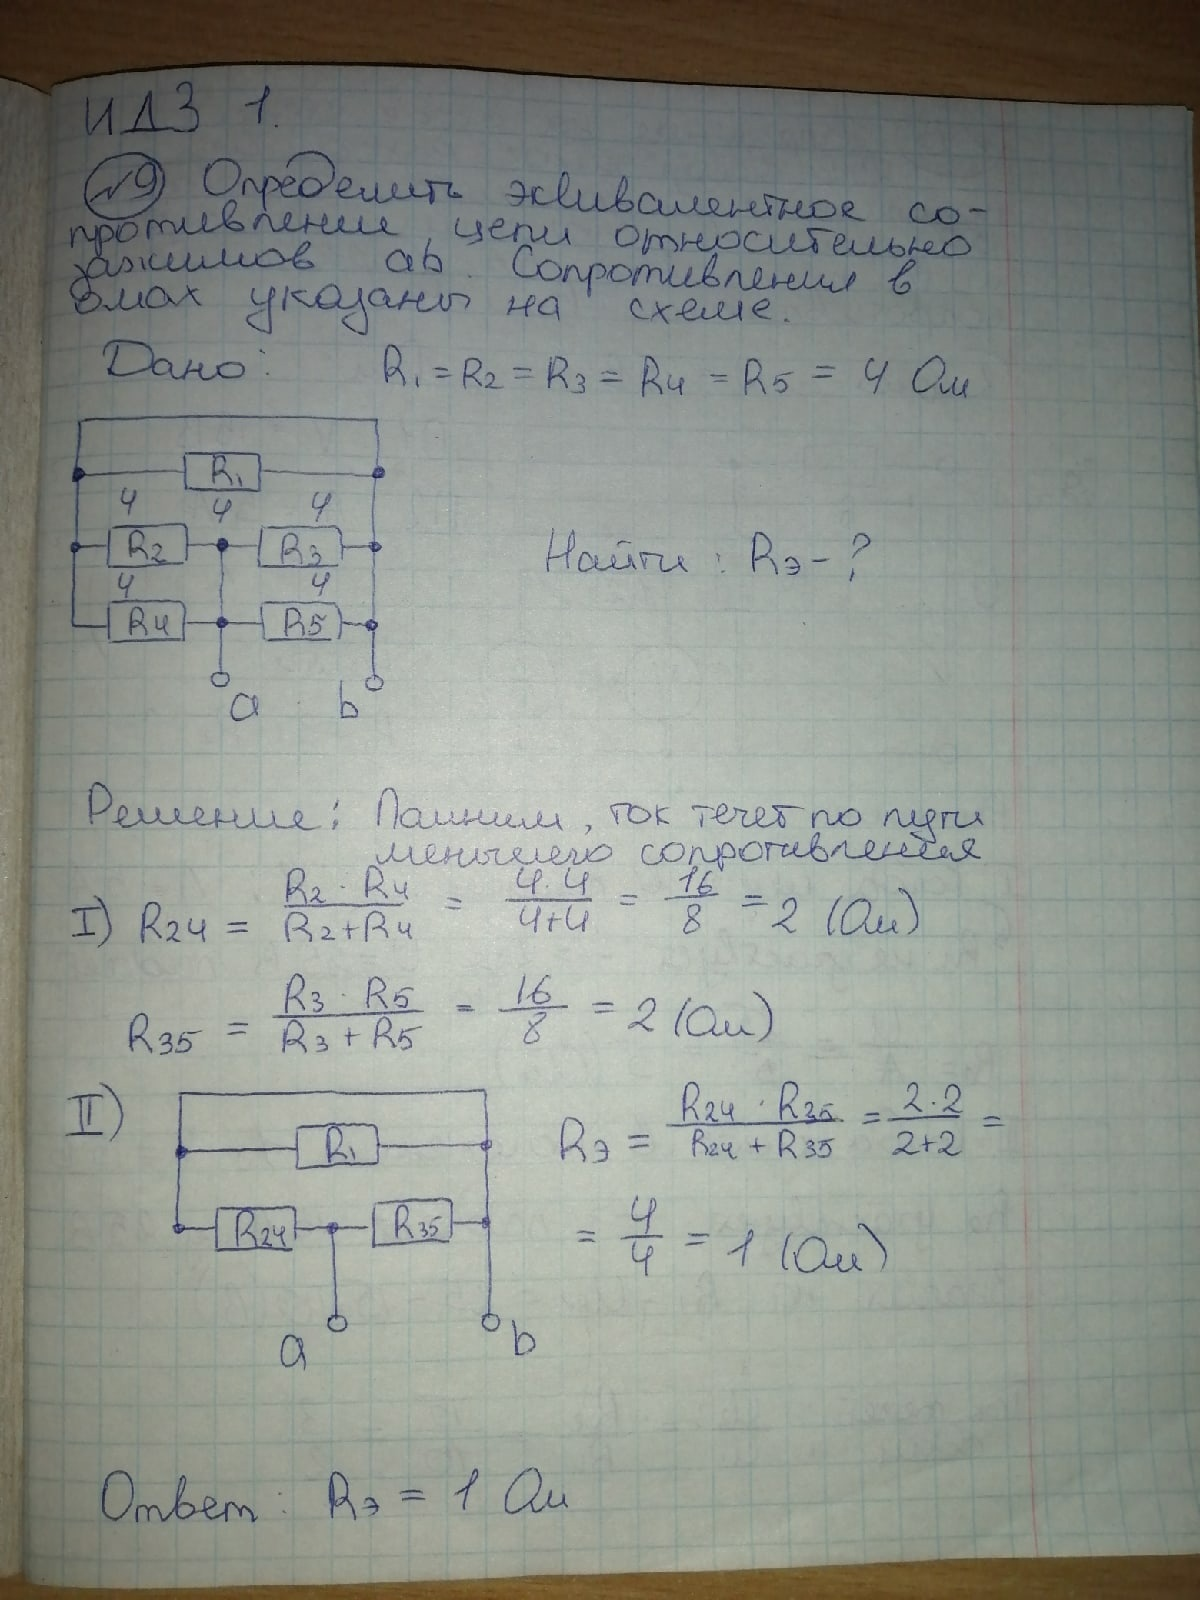 ИДЗ 1.
№9 Определить эквивалентное со-
противление цепи относительно
зажимов ab. Сопротивления в
омах указаны на схеме.
Дано: R₁ = R₂ = R₃ = R₄ = R₅ = 4 Ом
R₁
4 4 4
R₂ R₃
Найти: Rэ - ?
4 4
R₄ R₅
a b
Решение: Помним, ток течет по пути
меньшего сопротивления
I) R₂₄ = (R₂ · R₄)/(R₂ + R₄) = (4·4)/(4+4) = 16/8 = 2 (Ом)
R₃₅ = (R₃ · R₅)/(R₃ + R₅) = 16/8 = 2 (Ом)
II) Rэ = (R₂₄ · R₃₅)/(R₂₄ + R₃₅) = (2·2)/(2+2) =
R₁
R₂₄ R₃₅
= 4/4 = 1 (Ом)
a b
Ответ: Rэ = 1 Ом